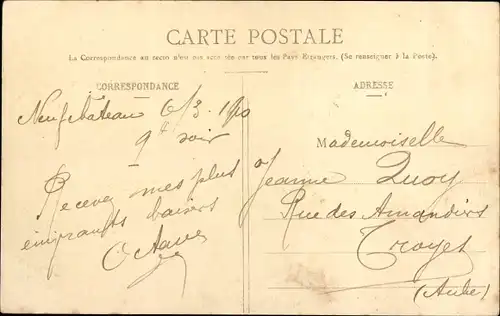 CARTE POSTALE
La Correspondance au recto n'est pas acceptée par tous les Pays Étrangers. (Se renseigner à la Poste).
CORRESPONDANCE
ADRESSE
Neufchateau 6/3. 1910
9h soir
Recevez mes plus
empirants baisers
Octave
Mademoiselle
Jeanne Quoy
Rue des Amandiers
Troyes
(Aube)